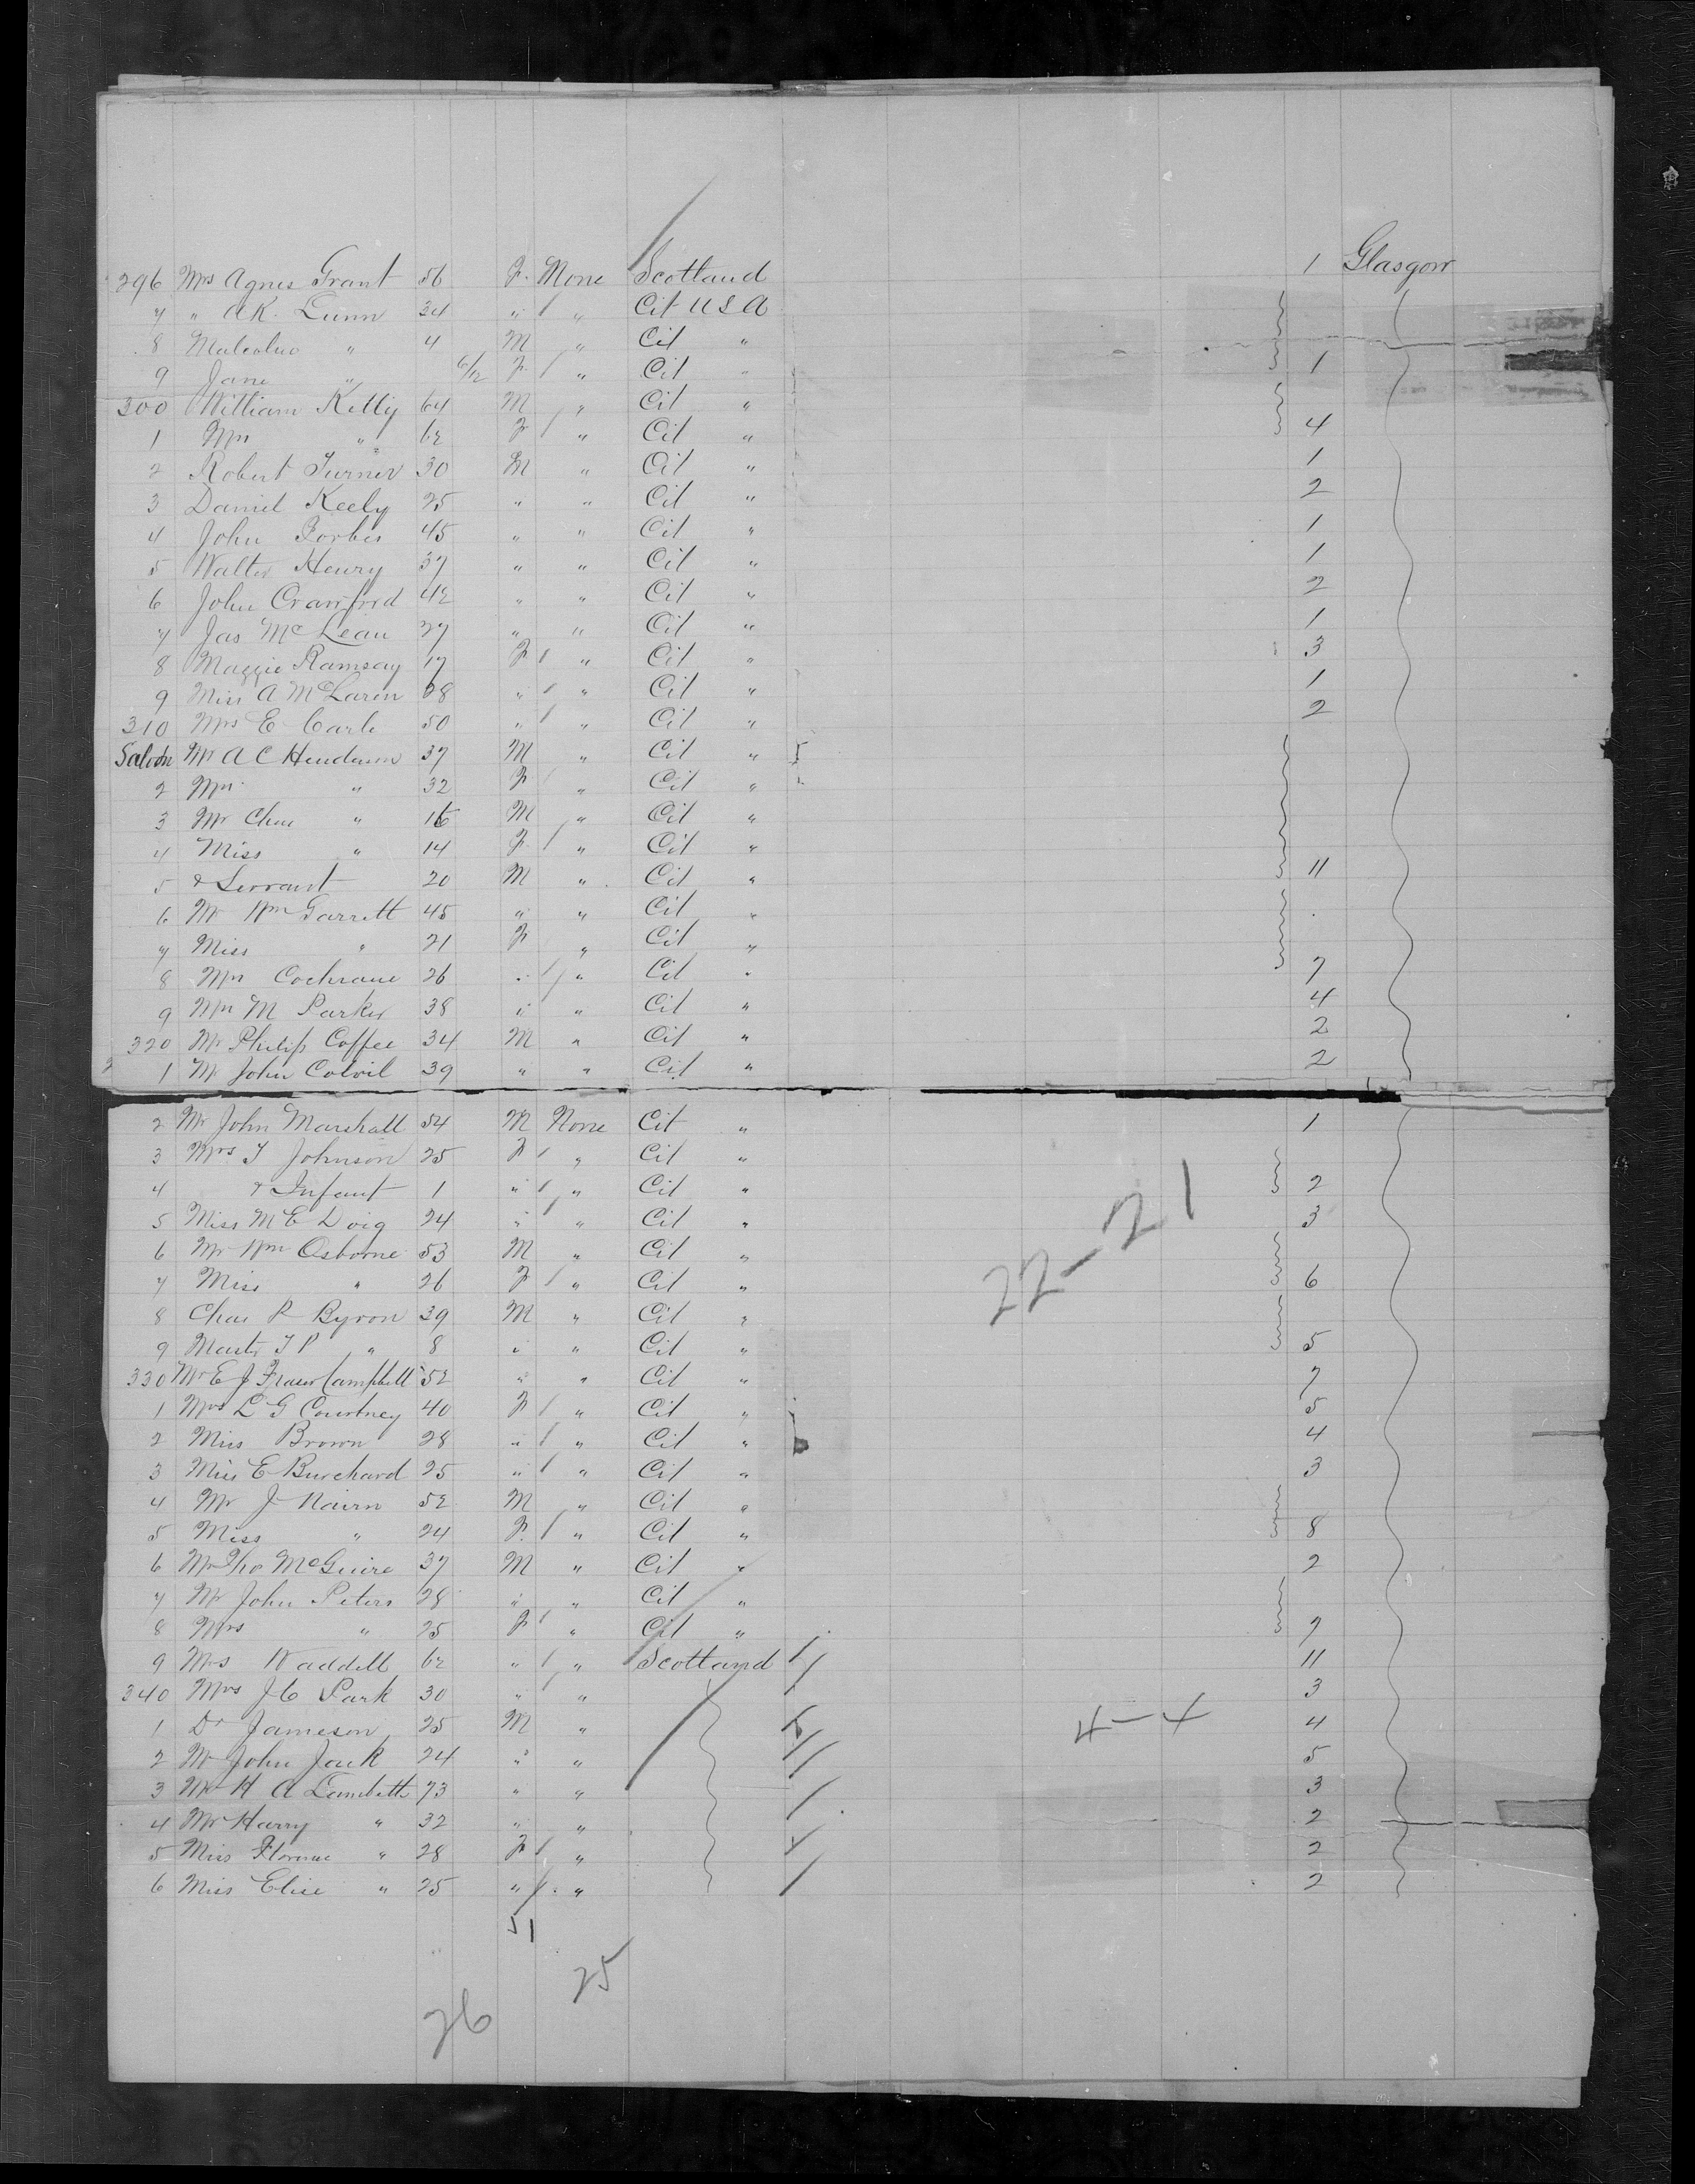 296 Mrs Agnes Grant 56 F. None Scotland 1 Glasgow
7 " A K. Lunn 34 " " Cit U S A
8 Malcolm " 4 M " Cit "
9 Jane " 6/12 F " Cit " 1
300 William Kelly 64 M " Cit "
1 Mrs " 62 F " Cit " 4
2 Robert Turner 30 M " Cit " 1
3 Daniel Keely 25 " " Cit " 2
4 John Forbes 45 " " Cit " 1
5 Walter Henry 37 " " Cit " 1
6 John Crawford 42 " " Cit " 2
7 Jas McLean 27 " " Cit " 1
8 Maggie Ramsay 17 F " Cit " 3
9 Miss A McLaren 28 " " Cit " 1
310 Mrs E Carle 50 " " Cit " 2
Saloon Mr A C Henderson 37 M " Cit "
2 Mrs " 32 F " Cit "
3 Mr Chas " 16 M " Cit "
4 Miss " 14 F " Cit "
5 & Servant 20 M " Cit " 11
6 Mr Wm Garrett 45 " " Cit "
7 Miss " 21 F " Cit "
8 Mrs Cochrane 26 " " Cit " 7
9 Mrs M Parker 38 " " Cit " 4
320 Mr Philip Coffee 34 M " Cit " 2
1 Mr John Colvil 39 " " Cit " 2
2 Mr John Marshall 54 M None Cit " 1
3 Mrs T Johnson 25 F " Cit "
4 & Infant 1 " " Cit " 2
5 Miss M E Doig 24 " " Cit " 3
22-21
6 Mr Wm Osborne 53 M " Cit "
7 Miss " 26 F " Cit " 6
8 Chas P Byron 39 M " Cit "
9 Mastr T P " 8 " " Cit " 5
330 Mr E J Fraser Campbell 52 " " Cit " 7
1 Mrs L G Courtney 40 F " Cit " 5
2 Miss Brown 28 " " Cit " 4
3 Miss E Burchard 25 " " Cit " 3
4 Mr J Nairn 52 M " Cit "
5 Miss " 24 F. " Cit " 8
6 Mr Tho McGuire 37 M " Cit " 2
7 Mr John Peters 28 " " Cit "
8 Mrs " 25 F " Cit " 7
9 Mrs Waddell 62 " " Scotland 11
340 Mrs J C Park 30 " " 3
1 Dr Jameson 25 M " 4-4 4
2 Mr John Jack 24 " " 5
3 Mr H A Lambeth 73 " " 3
4 Mr Harry " 32 " " 2
5 Miss Florence " 28 F " 2
6 Miss Elise " 25 " " 2
51
25
26